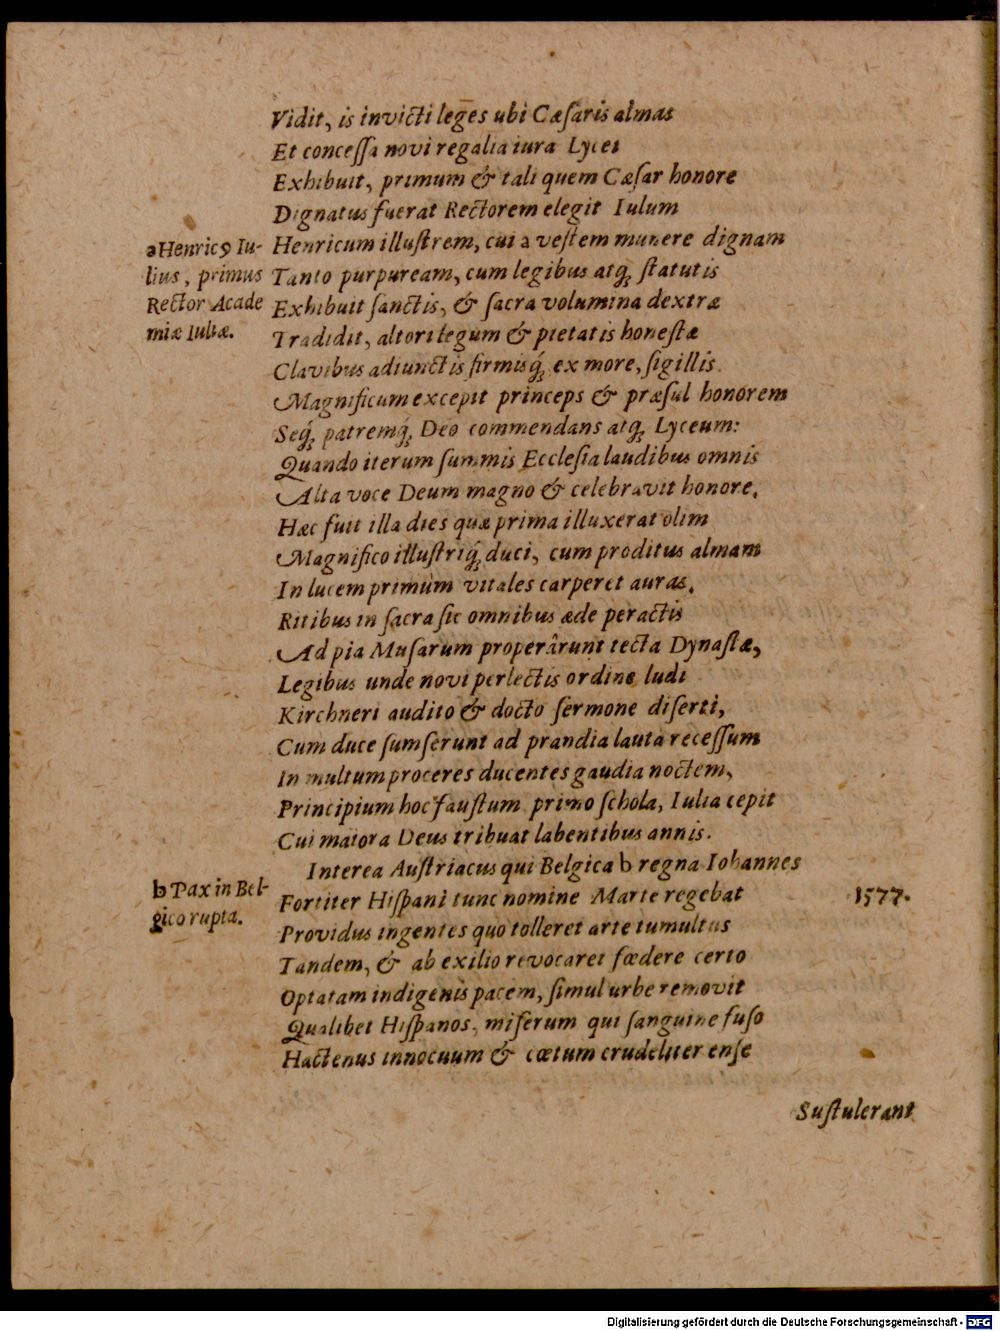 Vidit, is invicti leges ubi Cæſaris almas
Et conceſſa novi regalia iura Lycei
Exhibuit, primum & tali quem Cæſar honore
Dignatus fuerat Rectorem elegit Iulum
Henricum illuſtrem, cui a veſtem munere dignam
Tanto purpuream, cum legibus atq́; ſtatutis
Exhibuit ſanctis, & ſacra volumina dextræ
Tradidit, altori legum & pietatis honeſtæ
Clavibus adiunctis firmisq́; ex more, ſigillis.
Magnificum excepit princeps & præſul honorem
Seq́; patremq́; Deo commendans atq́; Lyceum:
Quando iterum ſummis Eccleſia laudibus omnis
Alta voce Deum magno & celebravit honore.
Hæc fuit illa dies quæ prima illuxerat olim
Magnifico illuſtriq́; duci, cum proditus almam
In lucem primùm vitales carperet auras.
Ritibus in ſacra ſic omnibus æde peractis
Ad pia Muſarum properârunt tecta Dynaſtæ,
Legibus unde novi perlectis ordine ludi
Kirchneri audito & docto ſermone diſerti,
Cum duce ſumſerunt ad prandia lauta receſſum
In multum proceres ducentes gaudia noctem,
Principium hoc fauſtum primo ſchola, Iulia cepit
Cui maiora Deus tribuat labentibus annis.
Interea Auſtriacus qui Belgica b regna Iohannes
Fortiter Hiſpani tunc nomine Marte regebat
Providus ingentes quo tolleret arte tumultus
Tandem, & ab exilio revocaret fœdere certo
Optatam indigenis pacem, ſimul urbe removit
Qualibet Hiſpanos, miſerum qui ſanguine fuſo
Hactenus innocuum & cœtum crudeliter enſe
Suſtulerant
aHenricꝰ Iu-
lius, primus
Rector Acade
miæ Iuliæ.
b Pax in Bel-
gico rupta.
1577.
Digitalisierung gefördert durch die Deutsche Forschungsgemeinschaft - DFG